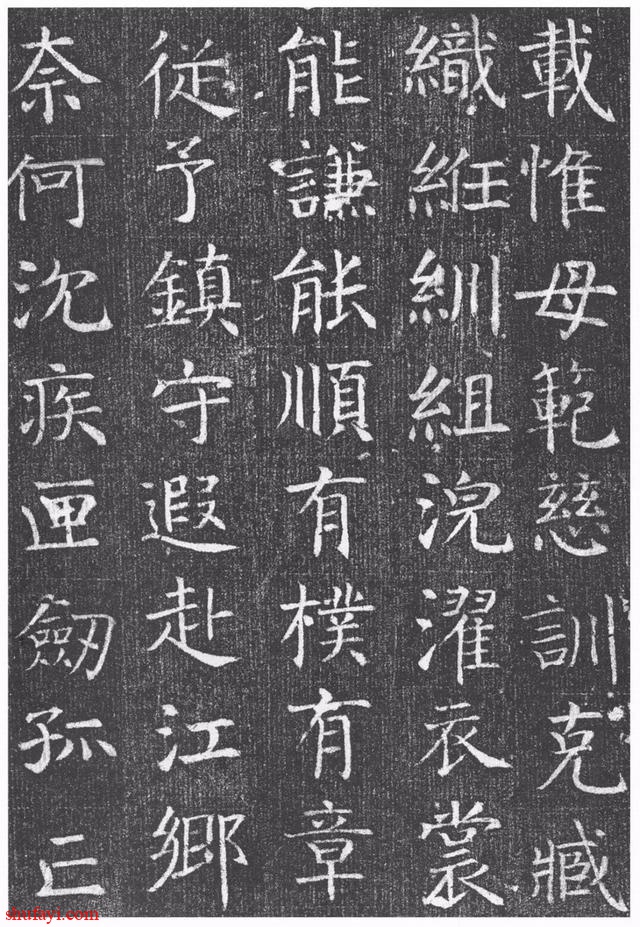 載惟母範慈訓克臧
織絍紃組浣濯衣裳
能謙能順有樸有章
従予鎮守遐赴江鄉
奈何沈疾匣劔孤亡
shufayi.com